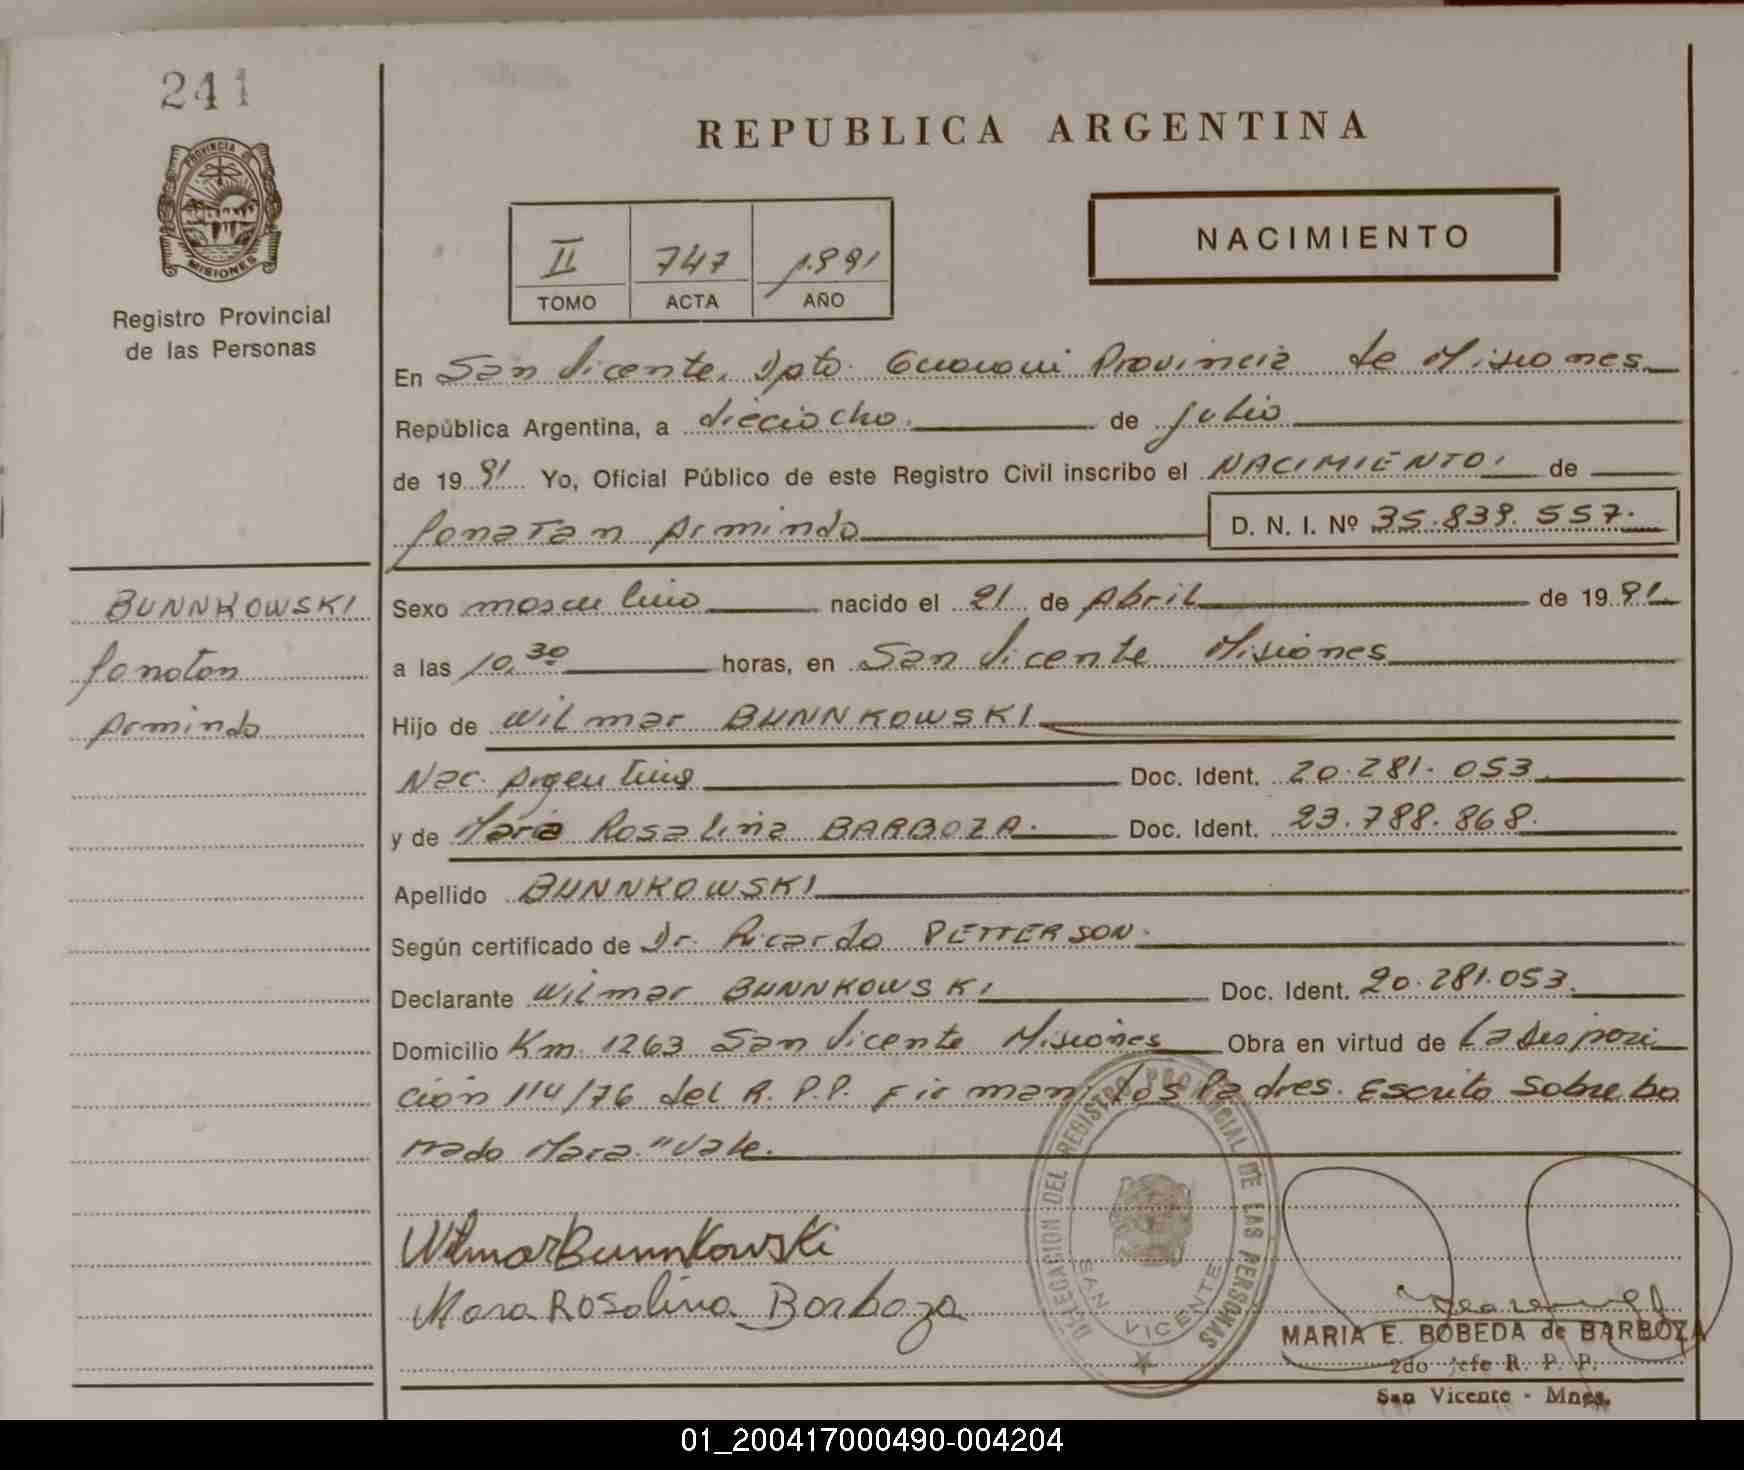 241
PROVINCIA DE
MISIONES
Registro Provincial
de las Personas
REPUBLICA ARGENTINA
NACIMIENTO
II 747 1.991
TOMO ACTA AÑO
En San Vicente, Dpto. Guarani Provincia de Misiones
República Argentina, a dieciocho. de julio
de 19 91 Yo, Oficial Público de este Registro Civil inscribo el NACIMIENTO. de
Jonatan Armindo D. N. I. Nº 35.839.557.
BUNNKOWSKI
Jonatan
Armindo
Sexo masculino nacido el 21 de Abril de 19 91.
a las 10,30 horas, en San Vicente Misiones
Hijo de Wilmar BUNNKOWSKI
Nac. Argentina Doc. Ident. 20.281.053
y de Mara Rosalina BARBOZA. Doc. Ident. 23.788.868.
Apellido BUNNKOWSKI
Según certificado de Dr. Ricardo PETTERSON.
Declarante Wilmar BUNNKOWSKI Doc. Ident. 20.281.053.
Domicilio Km. 1263 San Vicente Misiones Obra en virtud de La Disposi
ción 114/76 del R.P.P. Firman: los Padres. Escrito sobre bo
rrado Mara" Vale.
Wilmar Bunnkowski
Mara Rosalina Barboza
DELEGACION DEL REGISTRO PROVINCIAL DE LAS PERSONAS
SAN VICENTE
MARIA E. BOBEDA de BARBOZA
2do Jefe R. P. P.
San Vicente - Mnes.
01_200417000490-004204